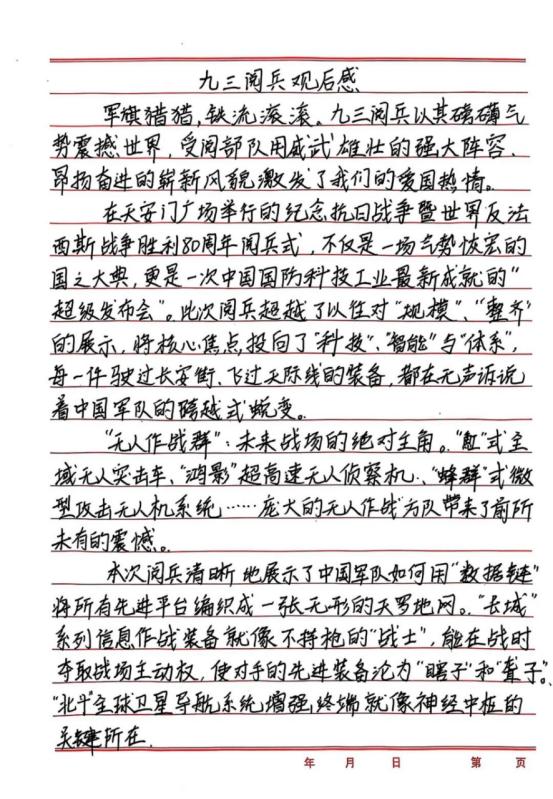 九三阅兵观后感
军旗猎猎，铁流滚滚。九三阅兵以其磅礴气
势震撼世界，受阅部队用威武雄壮的强大阵容、
昂扬奋进的崭新风貌激发了我们的爱国热情。
在天安门广场举行的纪念抗日战争暨世界反法
西斯战争胜利80周年阅兵式，不仅是一场气势恢宏的
国之大典，更是一次中国国防科技工业最新成就的"
超级发布会"。此次阅兵超越了以往对"规模"、"整齐"
的展示，将核心焦点投向了"科技"、"智能"与"体系"，
每一件驶过长安街、飞过天际线的装备，都在无声诉说
着中国军队的跨越式蜕变。
"无人作战群"：未来战场的绝对主角。"缸"式全
域无人突击车、"鸿影"超高速无人侦察机、"蜂群"式微
型攻击无人机系统……庞大的无人作战方队带来了前所
未有的震憾。
本次阅兵清晰地展示了中国军队如何用"数据链"
将所有先进平台编织成一张无形的天罗地网。"长城"
系列信息作战装备就像不持枪的"战士"，能在战时
夺取战场主动权，使对手的先进装备沦为"瞎子"和"聋子"。
"北斗"全球卫星导航系统增强终端就像神经中枢的
关键所在.
年 月 日 第 页